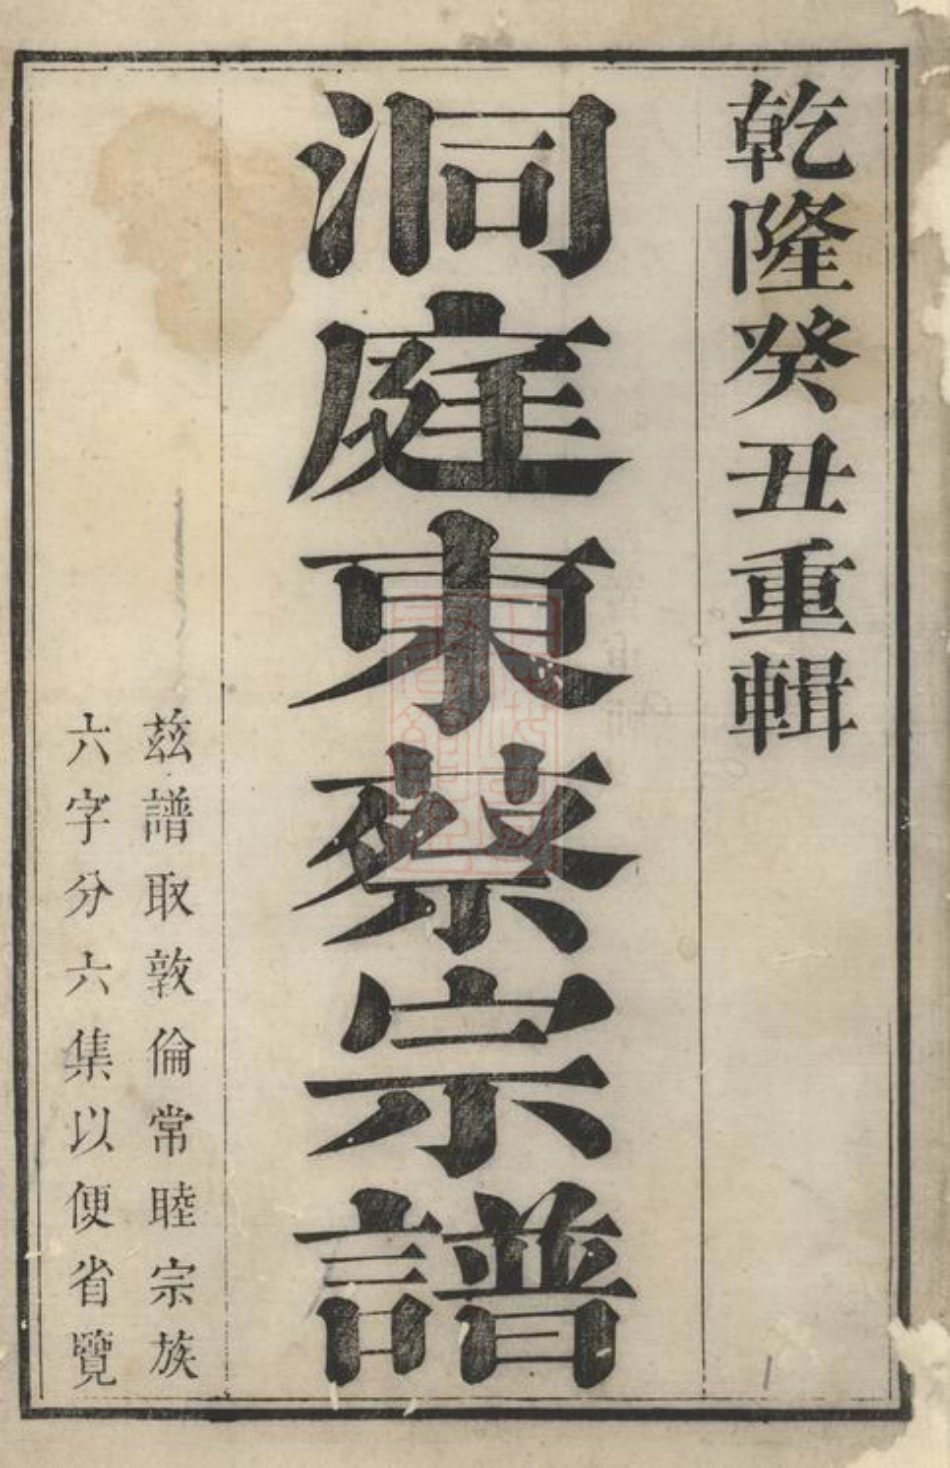 乾隆癸丑重輯
洞庭東蔡宗譜
茲譜取敦倫常睦宗族
六字分六集以便省覽